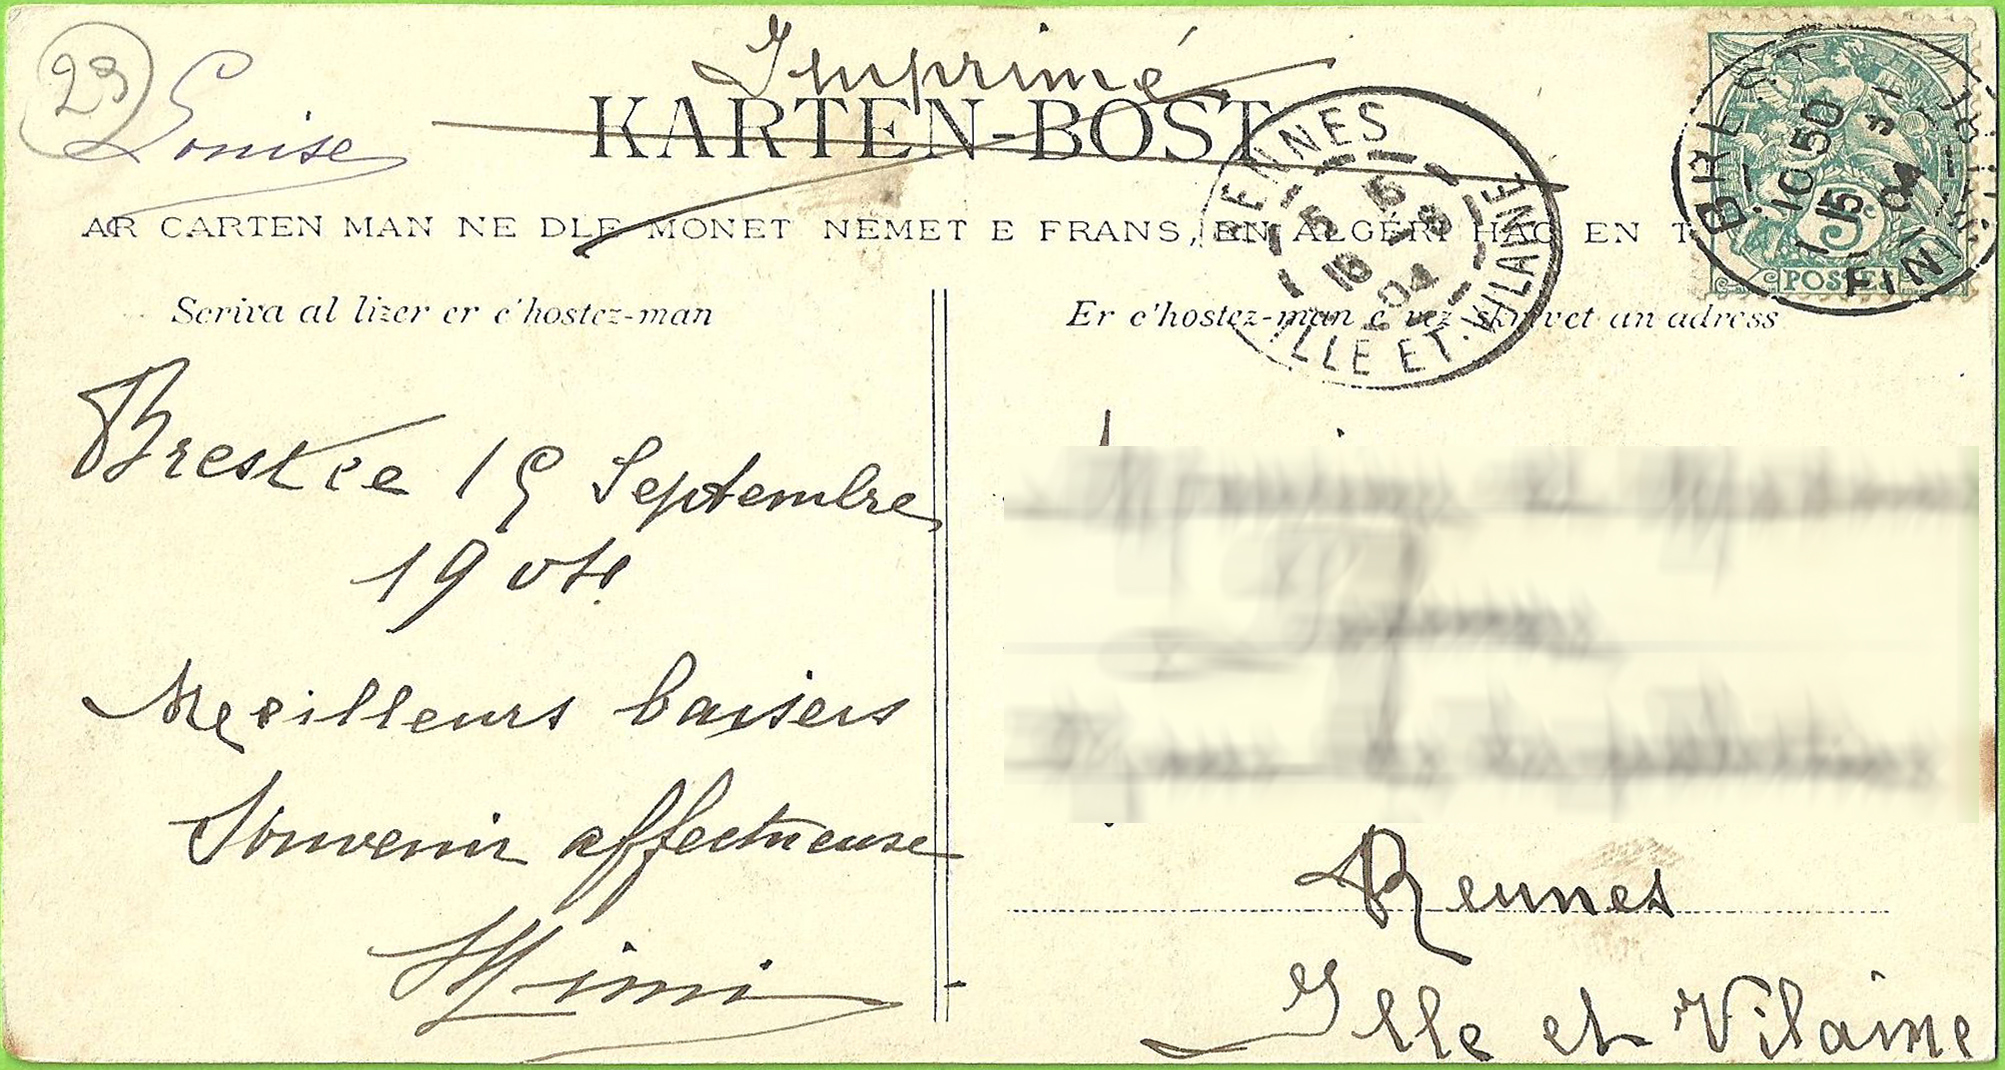 23
Louise
Imprimé
KARTEN-BOST
AR CARTEN MAN NE DLE MONET NEMET E FRANS, EN ALGÉRI HAG EN T
RENNES
5 15
15 - 9
04
ILLE ET-VILAINE
10 50
15
04
5c
POSTES
Scriva al lizer er c'hostez-man
Er c'hostez-man e vez skrivet an adress
Brest le 15 Septembre
1904
Meeilleurs baisers
Souvenir affectueuse
Mimi
Rennes
Ille et Vilaine